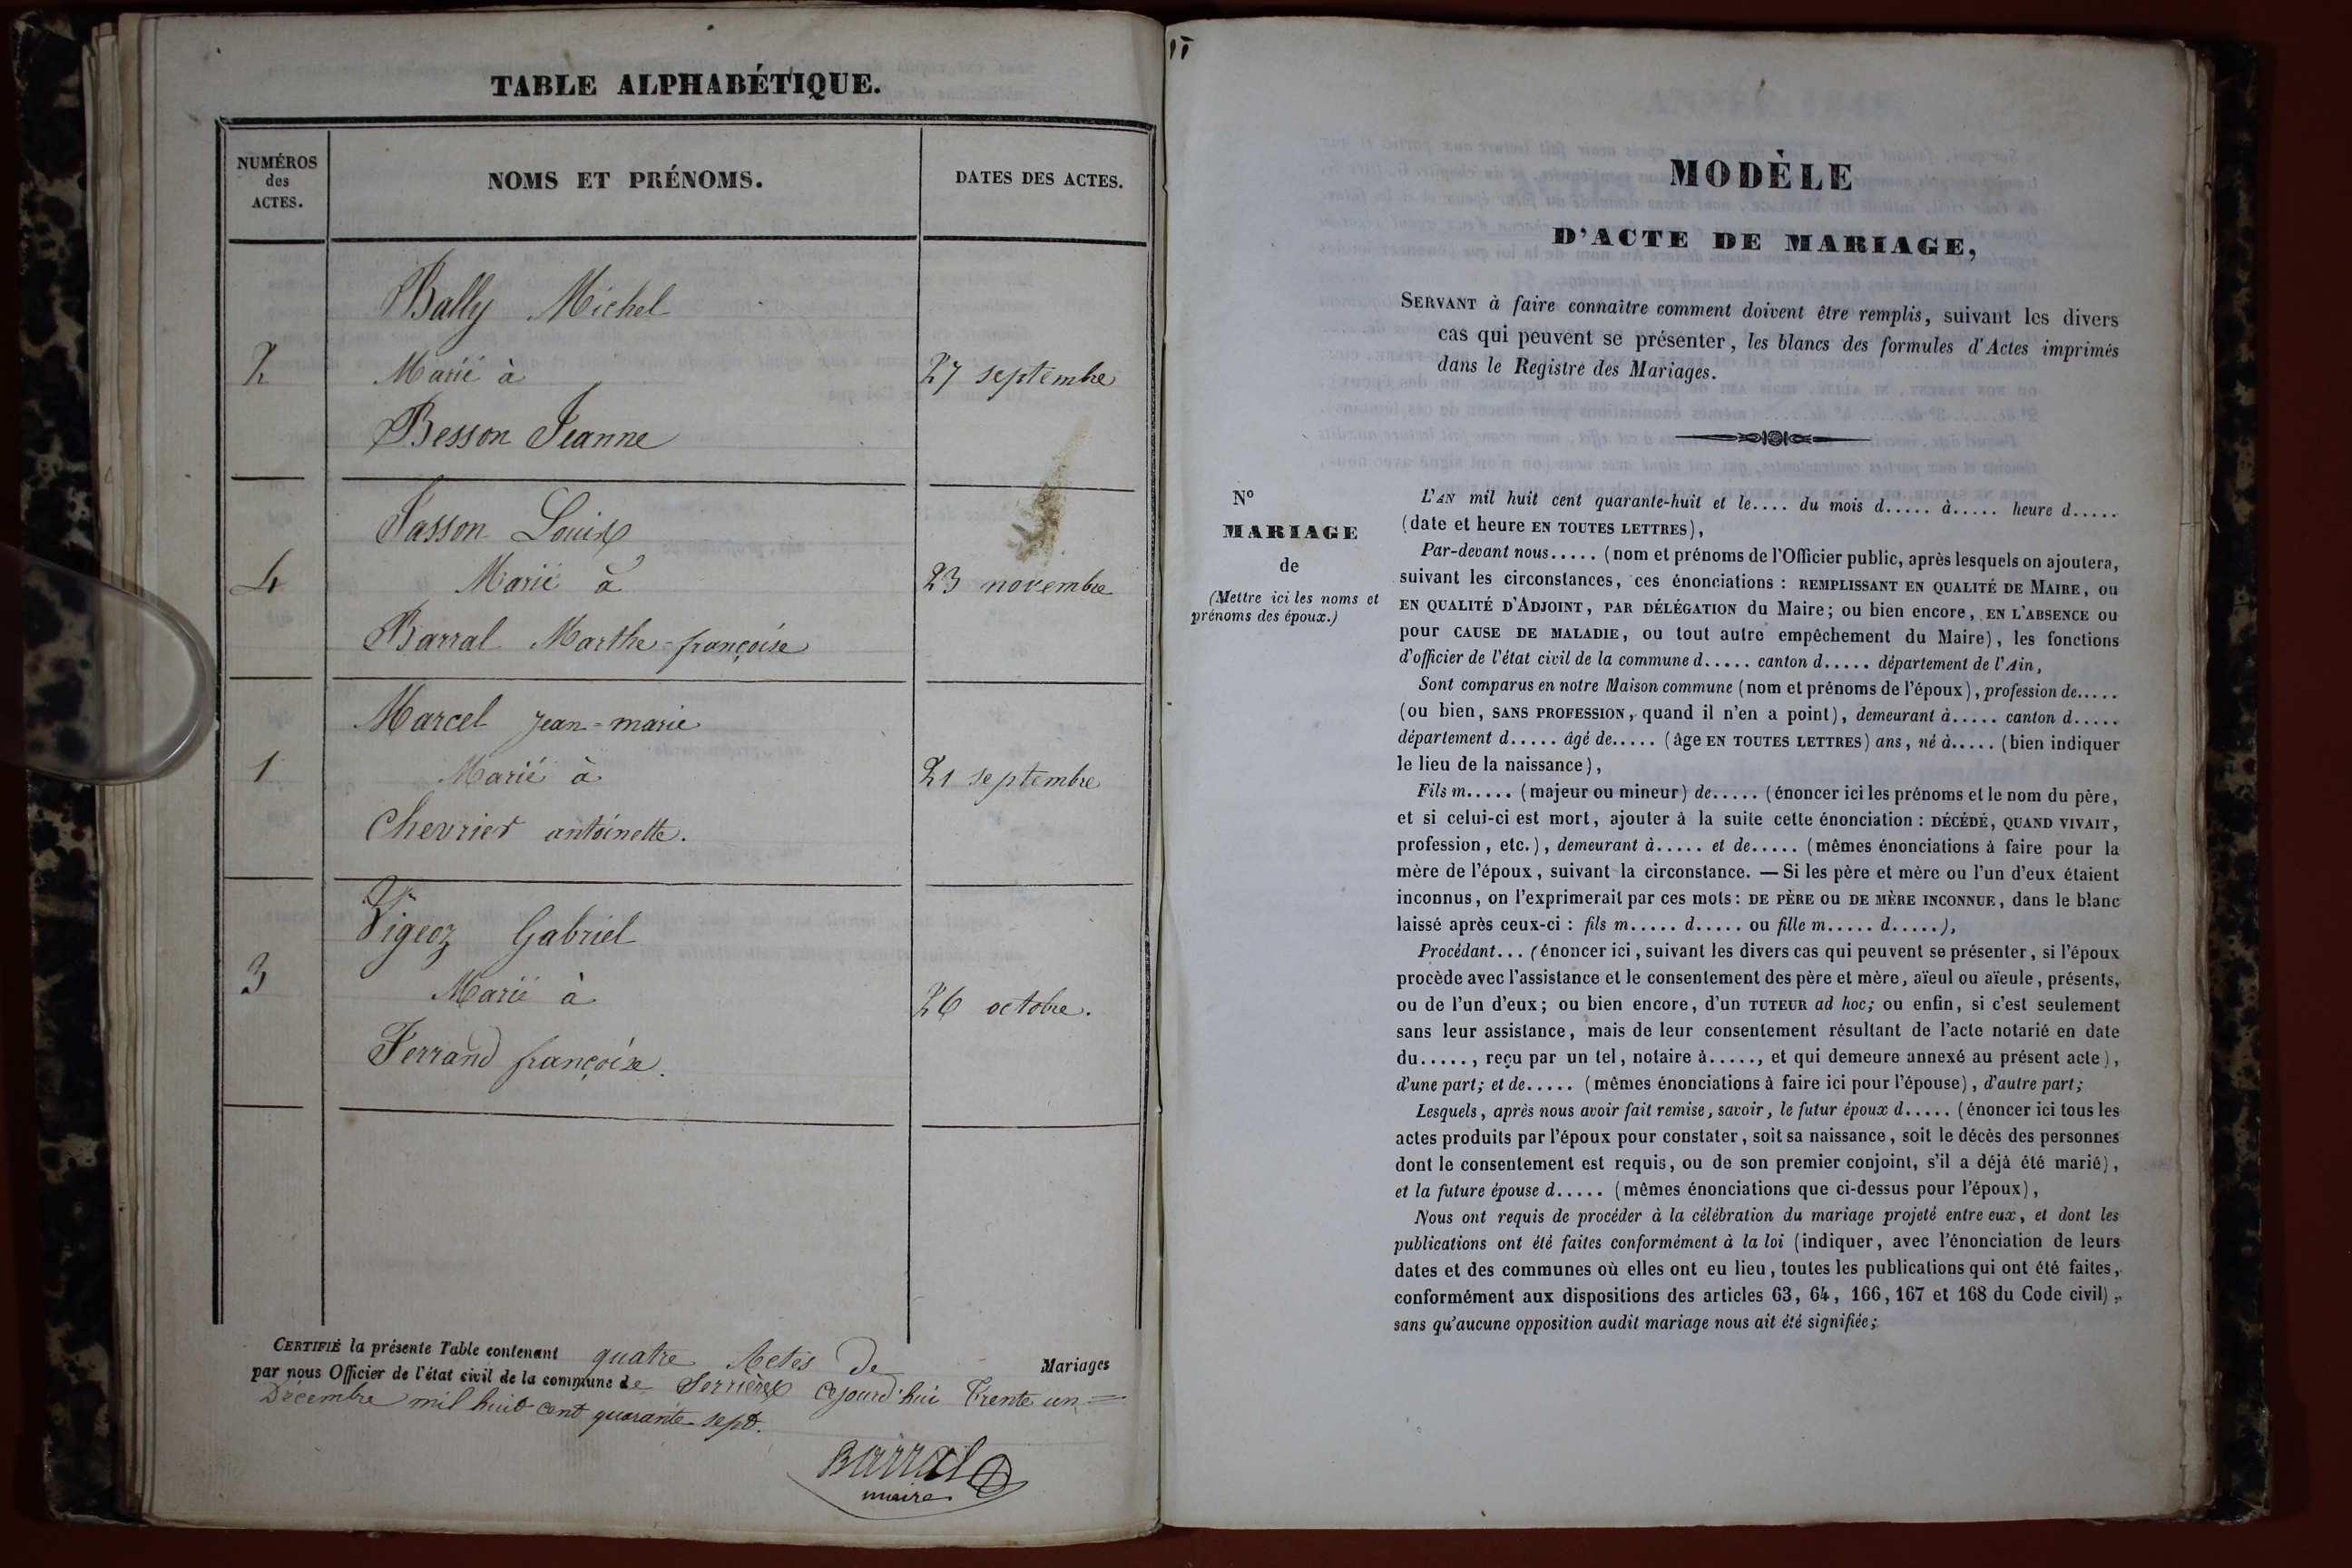 TABLE ALPHABÉTIQUE.
NUMÉROS
des
ACTES.
NOMS ET PRÉNOMS.
DATES DES ACTES.
Bally Michel
2 Marié à 27 septembre
Besson Jeanne
Fasson Louis
4 Marié à 23 novembre
Barral Marthe-françoise
Marcel Jean-marie
1 Marié à 21 septembre
Chevrier antoinette.
Vigeoz Gabriel
3 Marié à 26 octobre.
Ferrand françoise.
CERTIFIÉ la présente Table contenant quatre Actes de Mariages
par nous Officier de l'état civil de la commune de Serrières Cejourd'hui Trente un
Décembre mil huit cent quarante sept.
Barral
maire
MODÈLE
D'ACTE DE MARIAGE,
SERVANT à faire connaître comment doivent être remplis, suivant les divers
cas qui peuvent se présenter, les blancs des formules d'Actes imprimés
dans le Registre des Mariages.
N°
MARIAGE
de
(Mettre ici les noms et
prénoms des époux.)
L'AN mil huit cent quarante-huit et le.... du mois d..... à..... heure d.....
(date et heure EN TOUTES LETTRES),
Par-devant nous..... (nom et prénoms de l'Officier public, après lesquels on ajoutera,
suivant les circonstances, ces énonciations : REMPLISSANT EN QUALITÉ DE MAIRE, OU
EN QUALITÉ D'ADJOINT, PAR DÉLÉGATION du Maire; ou bien encore, EN L'ABSENCE ou
pour CAUSE DE MALADIE, ou tout autre empêchement du Maire), les fonctions
d'officier de l'état civil de la commune d..... canton d..... département de l'Ain,
Sont comparus en notre Maison commune (nom et prénoms de l'époux), profession de.....
(ou bien, SANS PROFESSION, quand il n'en a point), demeurant à..... canton d.....
département d..... âgé de..... (âge EN TOUTES LETTRES) ans, né à..... (bien indiquer
le lieu de la naissance),
Fils m..... (majeur ou mineur) de..... (énoncer ici les prénoms et le nom du père,
et si celui-ci est mort, ajouter à la suite cette énonciation : DÉCÉDÉ, QUAND VIVAIT,
profession, etc.), demeurant à..... et de..... (mêmes énonciations à faire pour la
mère de l'époux, suivant la circonstance. — Si les père et mère ou l'un d'eux étaient
inconnus, on l'exprimerait par ces mots: DE PÈRE ou DE MÈRE INCONNUE, dans le blanc
laissé après ceux-ci : fils m..... d..... ou fille m..... d.....),
Procédant... (énoncer ici, suivant les divers cas qui peuvent se présenter, si l'époux
procède avec l'assistance et le consentement des père et mère, aïeul ou aïeule, présents,
ou de l'un d'eux; ou bien encore, d'un TUTEUR ad hoc; ou enfin, si c'est seulement
sans leur assistance, mais de leur consentement résultant de l'acte notarié en date
du....., reçu par un tel, notaire à....., et qui demeure annexé au présent acte),
d'une part; et de..... (mêmes énonciations à faire ici pour l'épouse), d'autre part;
Lesquels, après nous avoir fait remise, savoir, le futur époux d..... (énoncer ici tous les
actes produits par l'époux pour constater, soit sa naissance, soit le décès des personnes
dont le consentement est requis, ou de son premier conjoint, s'il a déjà été marié),
et la future épouse d..... (mêmes énonciations que ci-dessus pour l'époux),
Nous ont requis de procéder à la célébration du mariage projeté entre eux, et dont les
publications ont été faites conformément à la loi (indiquer, avec l'énonciation de leurs
dates et des communes où elles ont eu lieu, toutes les publications qui ont été faites,
conformément aux dispositions des articles 63, 64, 166, 167 et 168 du Code civil),
sans qu'aucune opposition audit mariage nous ait été signifiée;